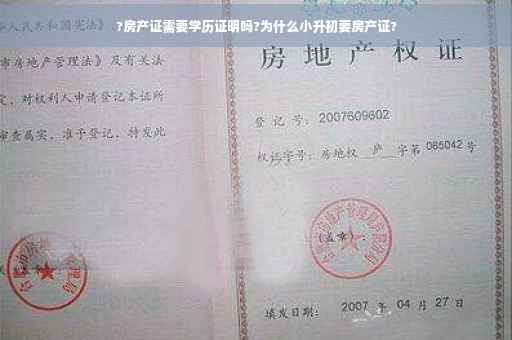 ?房产证需要学历证明吗?为什么小升初要房产证?
人民共和国宪法》
市房地产管理法》
定，对权利人申请登记本证所
审查属实，准予登记，特发此
房地产权证
登记号：2007609602
权证字号：房地权 庐 字第 085042 号
(盖章)：
填发日期： 2007 年 04 月 27 日